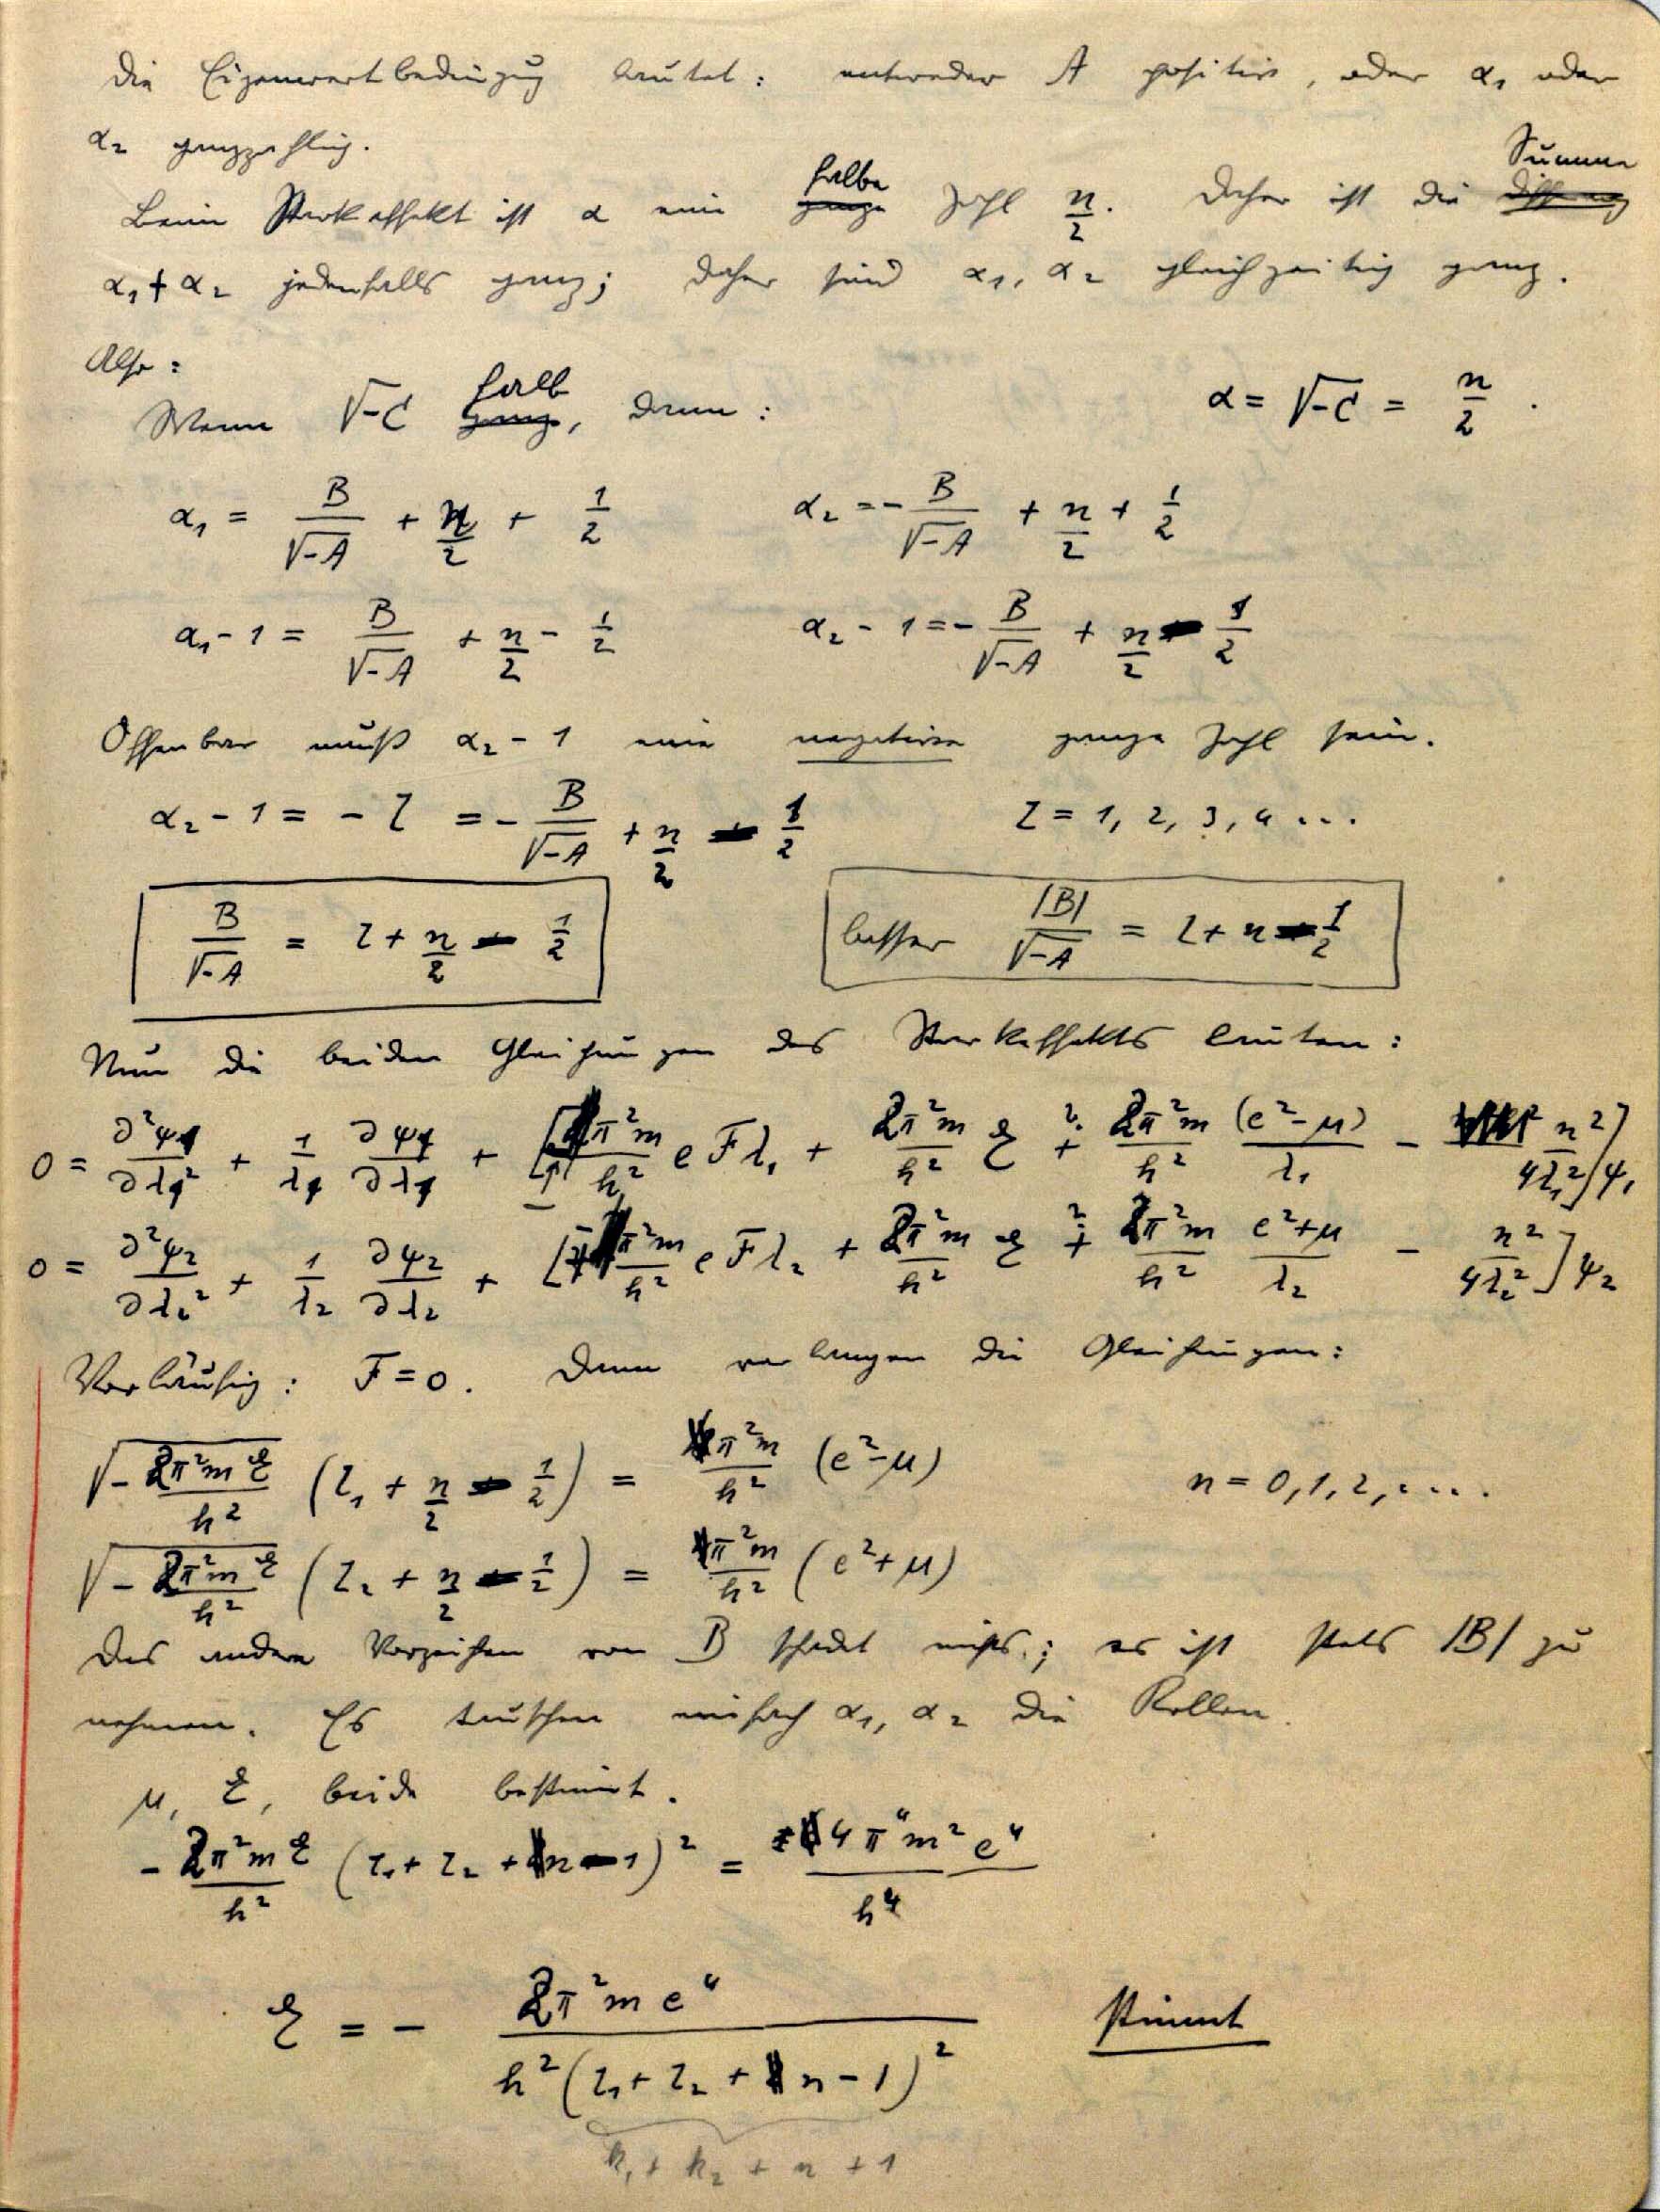 Die Eigenwertbedingung lautet: entweder A positiv, oder α₁ oder
α₂ ganzzahlig.
Beim Starkeffekt ist α eine halbe Zahl n/2. Daher ist die Summe
α₁ + α₂ jedenfalls ganz; daher sind α₁, α₂ gleichzeitig ganz.
Also:
Wenn √-C halb, dann: α = √-C = n/2.
α₁ = B/√-A + n/2 + 1/2 α₂ = - B/√-A + n/2 + 1/2
α₁ - 1 = B/√-A + n/2 - 1/2 α₂ - 1 = - B/√-A + n/2 - 1/2
Offenbar muß α₂ - 1 eine negative ganze Zahl sein.
α₂ - 1 = - l = - B/√-A + n/2 - 1/2 l = 1, 2, 3, 4 ...
B/√-A = l + n/2 - 1/2 besser |B|/√-A = l + n - 1/2
Nun die beiden Gleichungen des Starkeffekts lauten:
0 = ∂²ψ₁/∂λ₁² + 1/λ₁ ∂ψ₁/∂λ₁ + [π²m/h² e F λ₁ + 2π²m/h² E + 2π²m/h² (e²-μ)/λ₁ - n²/4λ₁²] ψ₁
0 = ∂²ψ₂/∂λ₂² + 1/λ₂ ∂ψ₂/∂λ₂ + [π²m/h² e F λ₂ + 2π²m/h² E + 2π²m/h² e²+μ/λ₂ - n²/4λ₂²] ψ₂
Vorläufig: F = 0. Dann verlangen die Gleichungen:
√(- 2π²mE/h²) (l₁ + n/2 - 1/2) = π²m/h² (e²-μ) n = 0, 1, 2, ....
√(- 2π²mE/h²) (l₂ + n/2 - 1/2) = π²m/h² (e²+μ)
Das andere Vorzeichen von B schadet nichts; es ist stets |B| zu
nehmen. Es tauschen einfach α₁, α₂ die Rollen.
μ, E, beide bestimmt.
- 2π²mE/h² (l₁ + l₂ + n - 1)² = 4π⁴m²e⁴/h⁴
E = - 2π²me⁴/h²(l₁ + l₂ + n - 1)² stimmt
k₁ + k₂ + n + 1